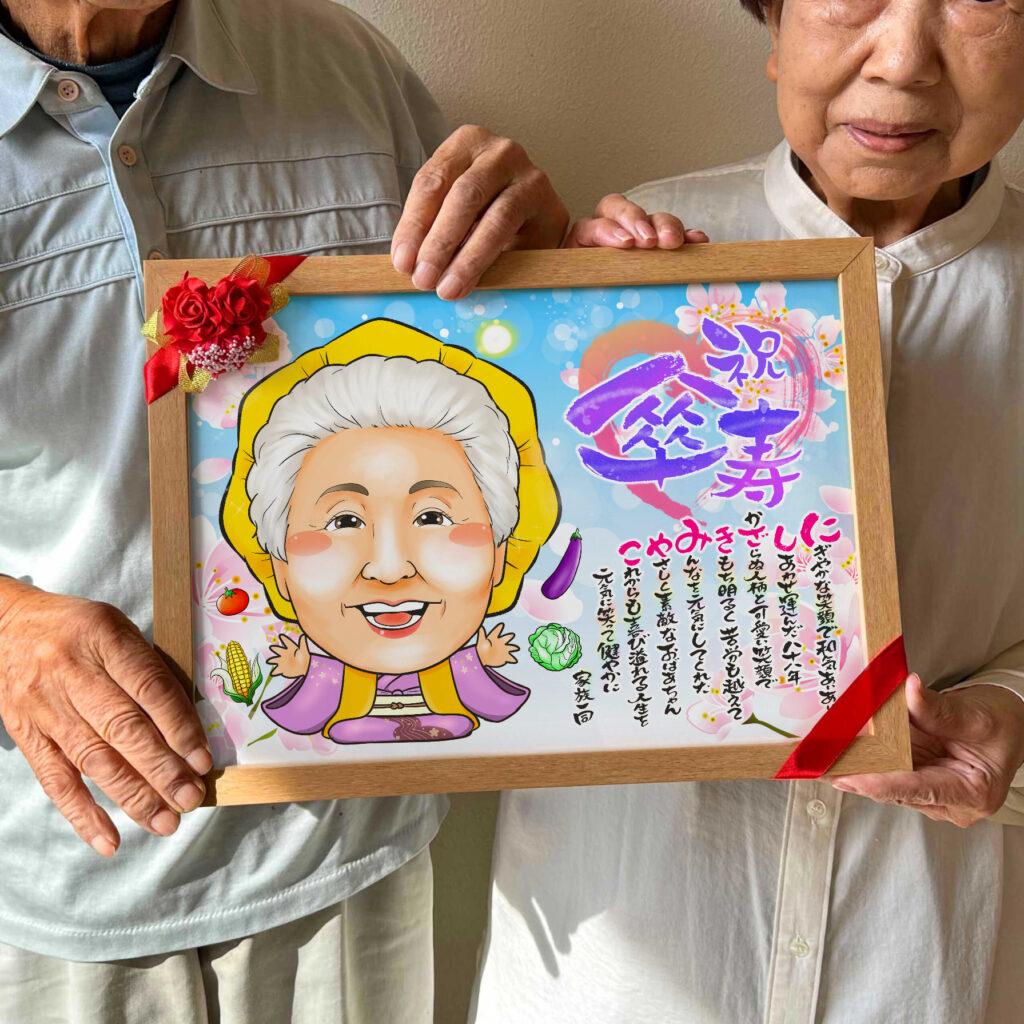 祝
傘寿
にぎやかな笑顔で和気あいあ
しあわせ運んだ八十年
かざらぬ人柄と可愛い笑顔で
きもち明るく苦労も越えて
みんなを元気にしてくれた
やさしく素敵なおばあちゃん
これからも喜び溢れる人生を
元気に笑って健やかに
家族一同